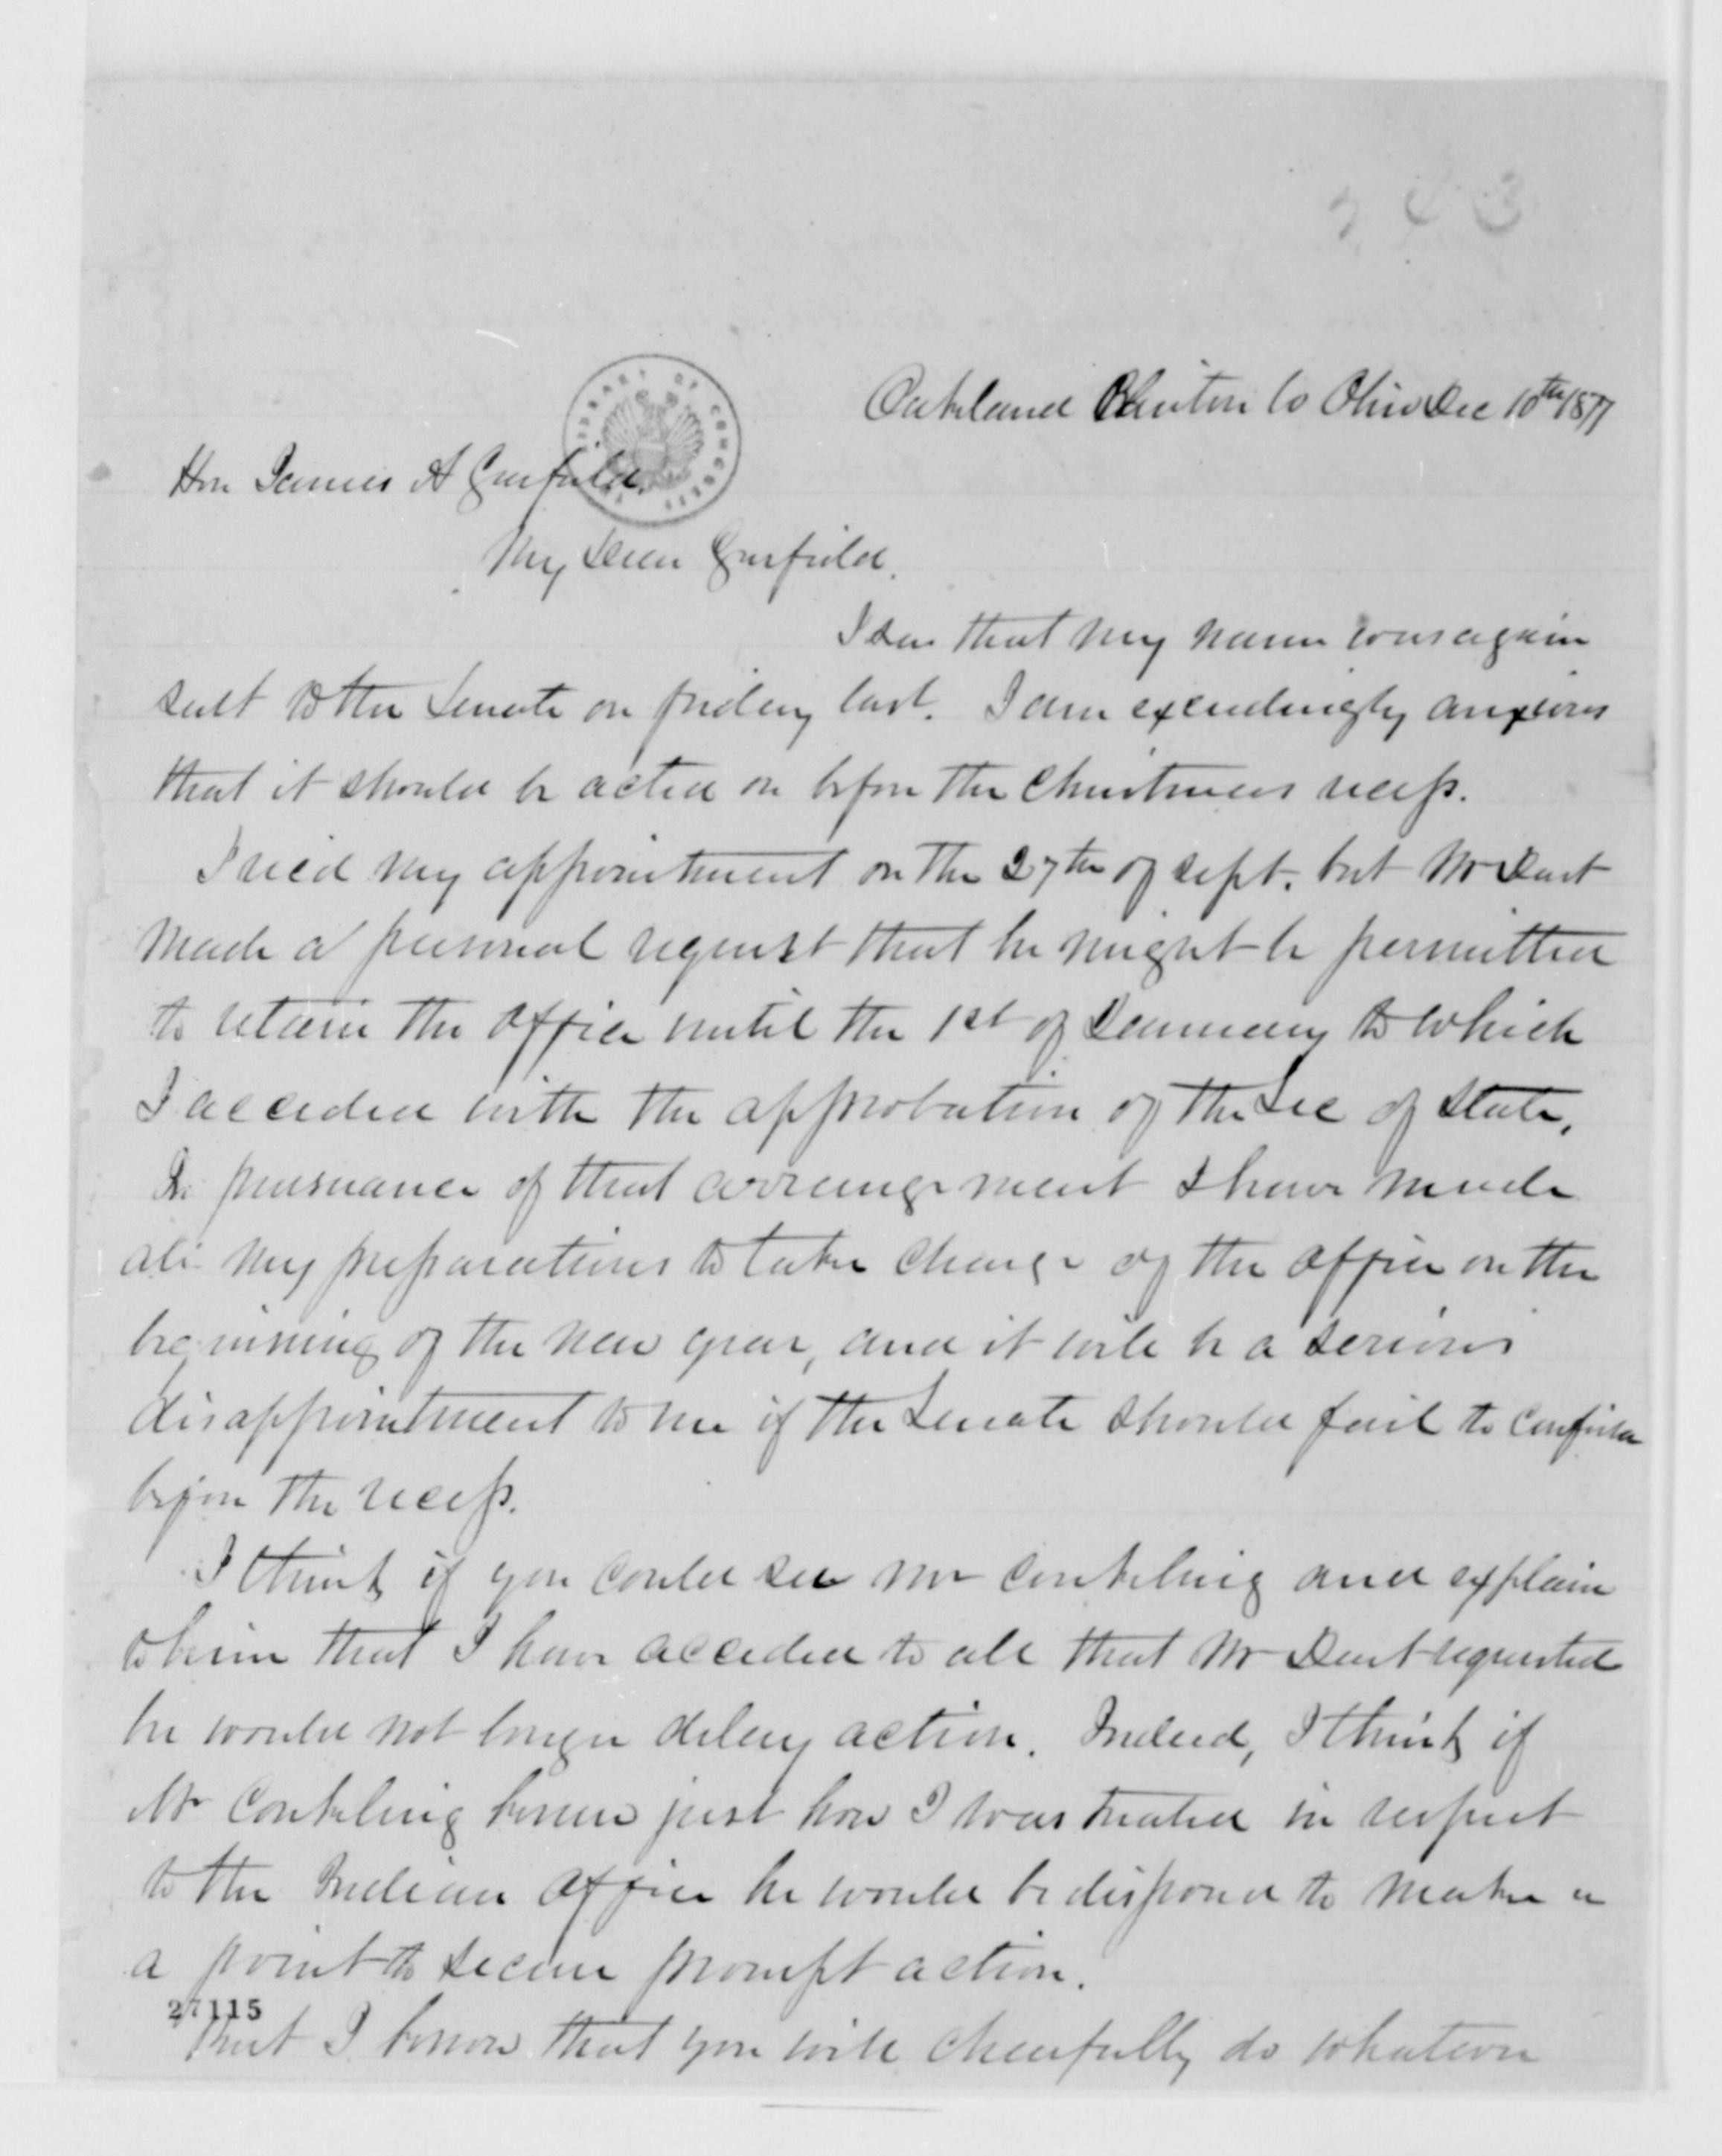 243
Oakland Clinton Co Ohio Dec 10th 1877
LIBRARY OF CONGRESS
Hon James A Garfield.
My Dear Garfield.
I see that my name was again
sent to the Senate on friday last. I am exceedingly anxious
that it should be acted on before the Christmas recess.
I recd my appointment on the 27th of Sept. but Mr Dent
made a personal request that he might be permitted
to retain the office until the 1st of January to which
I acceded with the approbation of the Sec of State.
In pursuance of that arrangement I have made
all my preparations to take charge of the office on the
beginning of the new year, and it will be a serious
disappointment to me if the Senate should fail to confirm
before the recess.
I think if you could see Mr Conkling and explain
to him that I have acceded to all that Mr Dent requested
he would not longer delay action. Indeed, I think if
Mr Conkling knew just how I was treated in respect
to the Indian office he would be disposed to make
a point to secure prompt action.
27115
But I know that you will cheerfully do whatever